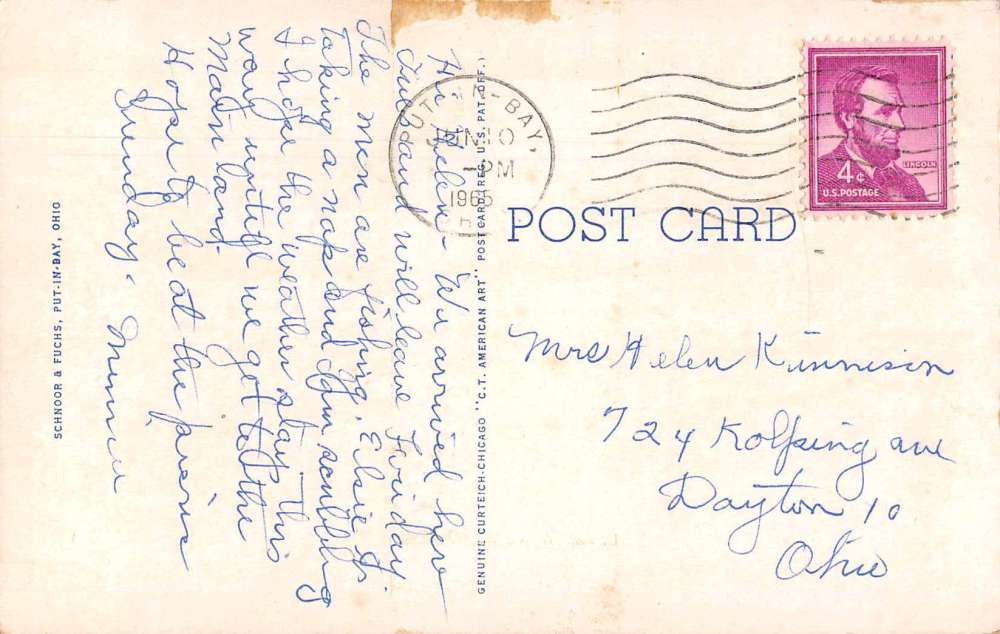 Hi Helen - We arrived here
and will leave Friday.
The men are fishing, Elsie is
taking a nap and I'm scribbling
I hope the weather stays this
way until we get to the
Main land.
Hope to be at the picnic
Sunday. Minnie
SCHNOOR & FUCHS, PUT-IN-BAY, OHIO
GENUINE CURTEICH-CHICAGO "C.T. AMERICAN ART" POST CARD (REG. U.S. PAT. OFF.)
PUT-IN-BAY,
JUN 10
-PM
1965
LINCOLN
4¢
U.S. POSTAGE
POST CARD
Mrs Helen Kinnison
724 Kolping ave
Dayton 10
Ohio